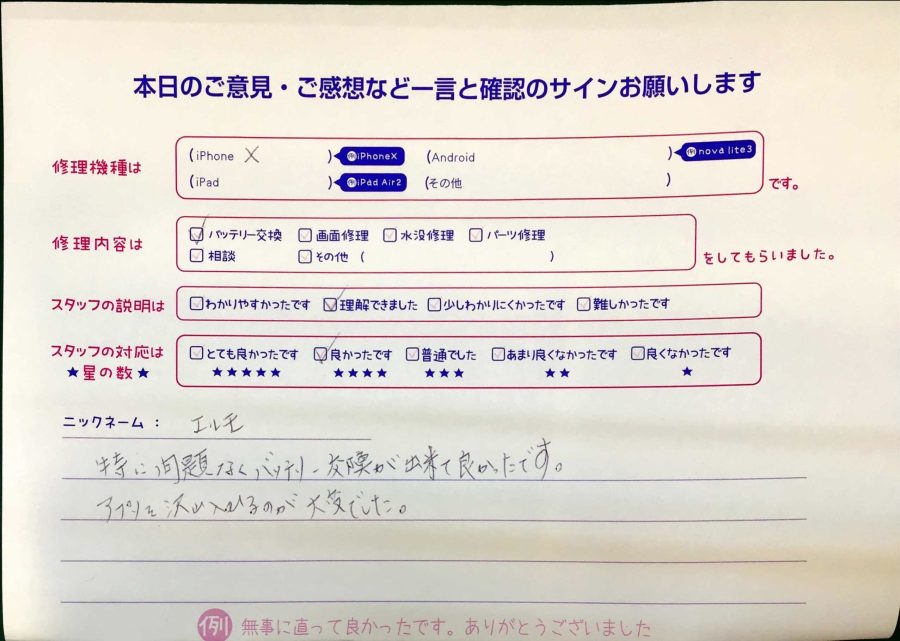 本日のご意見・ご感想など一言と確認のサインお願いします
修理機種は (iPhone X ) 例iPhoneX (Android ) 例nova lite3
(iPad ) 例iPad Air2 (その他 ) です。
修理内容は バッテリー交換 画面修理 水没修理 パーツ修理
相談 その他 ( ) をしてもらいました。
スタッフの説明は わかりやすかったです 理解できました 少しわかりにくかったです 難しかったです
スタッフの対応は とても良かったです 良かったです 普通でした あまり良くなかったです 良くなかったです
★星の数★ ★★★★★ ★★★★ ★★★ ★★ ★
ニックネーム: エルモ
特に問題なくバッテリー交換が出来て良かったです。
アプリを沢山入れるのが大変でした。
例 無事に直って良かったです。ありがとうございました